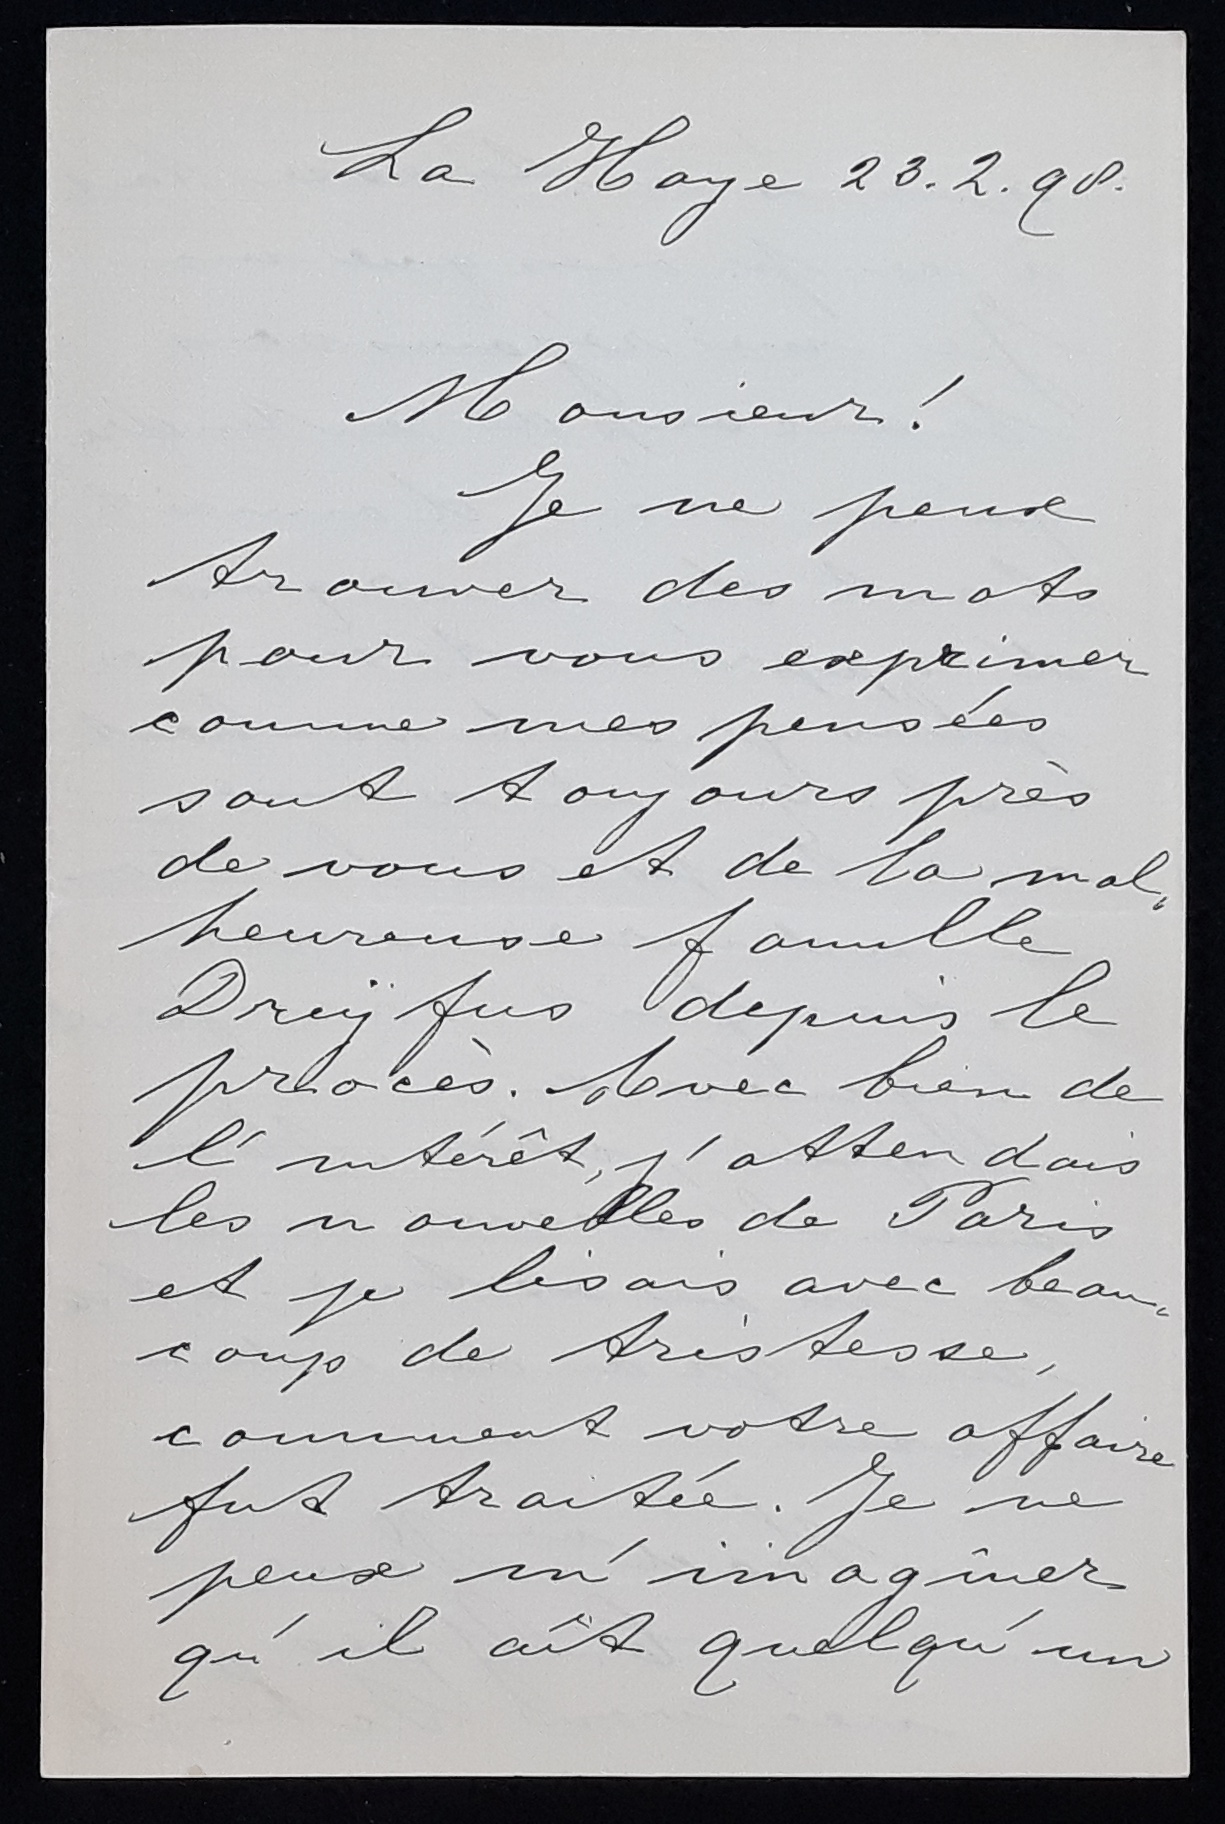 La Haye 23.2.98.
Monsieur!
Je ne peux
trouver des mots
pour vous exprimer
comme mes pensées
sont toujours près
de vous et de la mal„
heureuse famille
Dreÿfus depuis le
procès. Avec bien de
l'intérêt, j'attendais
les nouvelles de Paris
et je lisais avec beau„
coup de tristesse,
comment votre affaire
fut traitée. Je ne
peux m'imaginer
qu'il aît quelqu'un